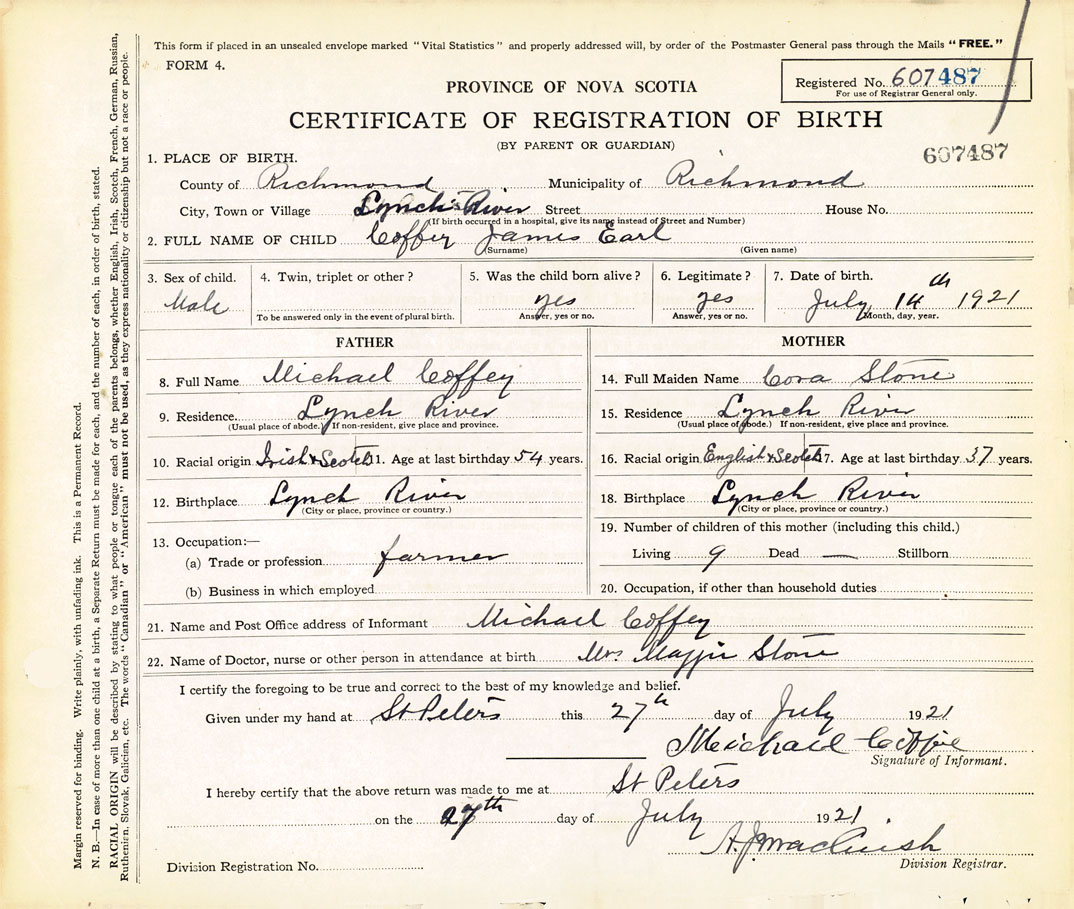 This form if placed in an unsealed envelope marked "Vital Statistics" and properly addressed will, by order of the Postmaster General pass through the Mails "FREE."
FORM 4.
Registered No. 607487
For use of Registrar General only.
PROVINCE OF NOVA SCOTIA
CERTIFICATE OF REGISTRATION OF BIRTH
(BY PARENT OR GUARDIAN)
607487
1. PLACE OF BIRTH.
County of Richmond Municipality of Richmond
City, Town or Village Lynch's River Street House No.
(If birth occurred in a hospital, give its name instead of Street and Number)
2. FULL NAME OF CHILD Coffey James Earl
(Surname) (Given name)
3. Sex of child. 4. Twin, triplet or other? 5. Was the child born alive? 6. Legitimate? 7. Date of birth.
Male yes yes July 14th 1921
To be answered only in the event of plural birth. Answer, yes or no. Answer, yes or no. Month, day, year.
FATHER
8. Full Name Michael Coffey
9. Residence. Lynch River
(Usual place of abode.) If non-resident, give place and province.
10. Racial origin Irish & Scotch 11. Age at last birthday 54 years.
12. Birthplace Lynch River
(City or place, province or country.)
13. Occupation:—
(a) Trade or profession farmer
(b) Business in which employed
MOTHER
14. Full Maiden Name Cora Stone
15. Residence Lynch River
(Usual place of abode.) If non-resident, give place and province.
16. Racial origin English & Scotch 17. Age at last birthday 37 years.
18. Birthplace Lynch River
(City or place, province or country.)
19. Number of children of this mother (including this child.)
Living 9 Dead — Stillborn
20. Occupation, if other than household duties
21. Name and Post Office address of Informant Michael Coffey
22. Name of Doctor, nurse or other person in attendance at birth Mrs Maggie Stone
I certify the foregoing to be true and correct to the best of my knowledge and belief.
Given under my hand at St Peters this 27th day of July 1921
Meichael Coffie
Signature of Informant.
I hereby certify that the above return was made to me at St Peters
on the 27th day of July 1921
A. J. MacCuish
Division Registrar.
Division Registration No.
Margin reserved for binding. Write plainly, with unfading ink. This is a Permanent Record.
N. B.—In case of more than one child at a birth, a Separate Return must be made for each, and the number of each, in order of birth, stated.
RACIAL ORIGIN will be described by stating to what people or tongue each of the parents belongs, whether English, Irish, Scotch, French, German, Russian,
Ruthenian, Slovak, Galician, etc. The words "Canadian" or "American" must not be used, as they express nationality or citizenship but not a race or people.